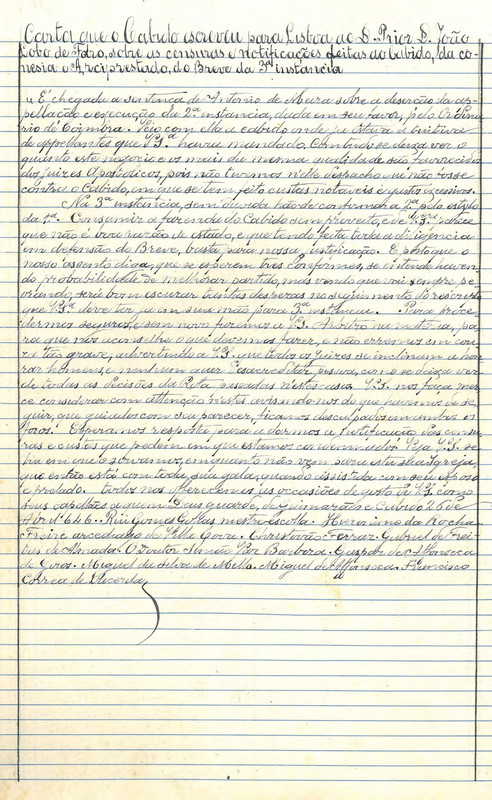 Carta que o Cabido escreveu para Lisboa ao D. Prior D. João
Lobo de Faro, sobre as censuras e notificações feitas ao Cabido, da co-
nesia e Arciprestado, do Breve da 3ª instancia
É chegada a sentença de Antonio de Meira sobre a deserção da ap-
pellação e execução da 2ª instancia, dada em seu favor, pelo Ordina-
rio de Coimbra. Veio com ella o cabido onde já estava a
de appellantes que V.S.ª havia mandado. Com tudo se deixa ver o
quanto este negocio e os mais da mesma qualidade são favorecidos
dos juizes Apostolicos, pois não tivemos nelle despacho que não fosse
contra o Cabido, em que se tem feito custas notaveis e gastos excessivos.
Na 3ª instancia, sem duvida hão de confirmar a 2ª pelo estylo
da 1ª. Consumir a fazenda do Cabido sem proveito, e de parece
que não é boa razão de estado, e que tendo feita toda a diligencia
em defensão do Breve, basta para nossa justificação. E posto que o
nosso assento diga, que se esperem tres conformes, se entende haven-
do probabilidade de melhorar partido, mas vendo que vai sempre pe-
orando, será bom escusar tantas despezas no seguimento do rescripto
que V.S.ª deve ter já em sua mão para 3ª instancia. Para proce-
dermos seguros, e sem novo fazemos a V.S. Arbitro na materia, pa-
ra que nos aconselhe o que devemos fazer, e não erremos em cou-
za tão grave, advertindo a V.S. que todos os Juizes se inclinam a hon-
rar homens, e nenhum quer desacreditar pessoa, como se deixa ver
de todas as decisões da Rota passadas nestes casos. V.S. nos faça mer-
ce considerar com attenção nestes avisando-nos do que havemos de se-
guir, que guiados com seu parecer, ficamos desculpados em ambos os
foros. Esperamos resposta para a darmos a justificação das censu-
ras e custas que pedem em que estamos condemnados. Veja V.S. se
ha em que o sirvamos, emquanto não vem para esta sua Igreja,
que então está com toda sua gala, quando assistida com seu esposo
e prelado. Todos nos offerecemos ás occasiões de gosto de V.S. como
seus capellães a quem Deus guarde, de Guimarães e Cabido 26 de
Abril 646. Rui Gomes Gollas mestre escolla. Hieronimo da Rocha
Freire arcediago de Villa Cova. Christovão Ferraz. Gabriel de Frei-
tas de Almada. O Doutor Simão Vaz Barbosa. Gaspar de Affonseca
de Goios. Miguel da Silva de Mello. Miguel de Affonseca. Francisco
Correa de Lacerda